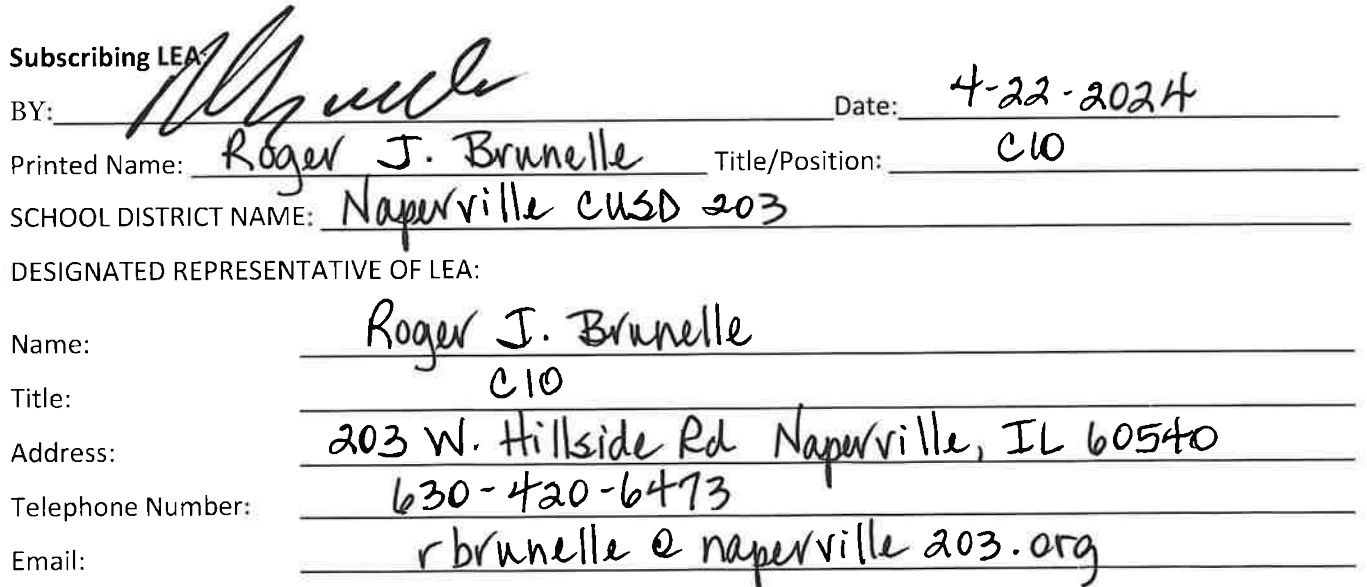 Subscribing LEA:
BY: Date: 4-22-2024
Printed Name: Roger J. Brunelle Title/Position: CIO
SCHOOL DISTRICT NAME: Naperville CUSD 203
DESIGNATED REPRESENTATIVE OF LEA:
Name: Roger J. Brunelle
Title: CIO
Address: 203 W. Hillside Rd Naperville, IL 60540
Telephone Number: 630-420-6473
Email: rbrunelle@naperville203.org